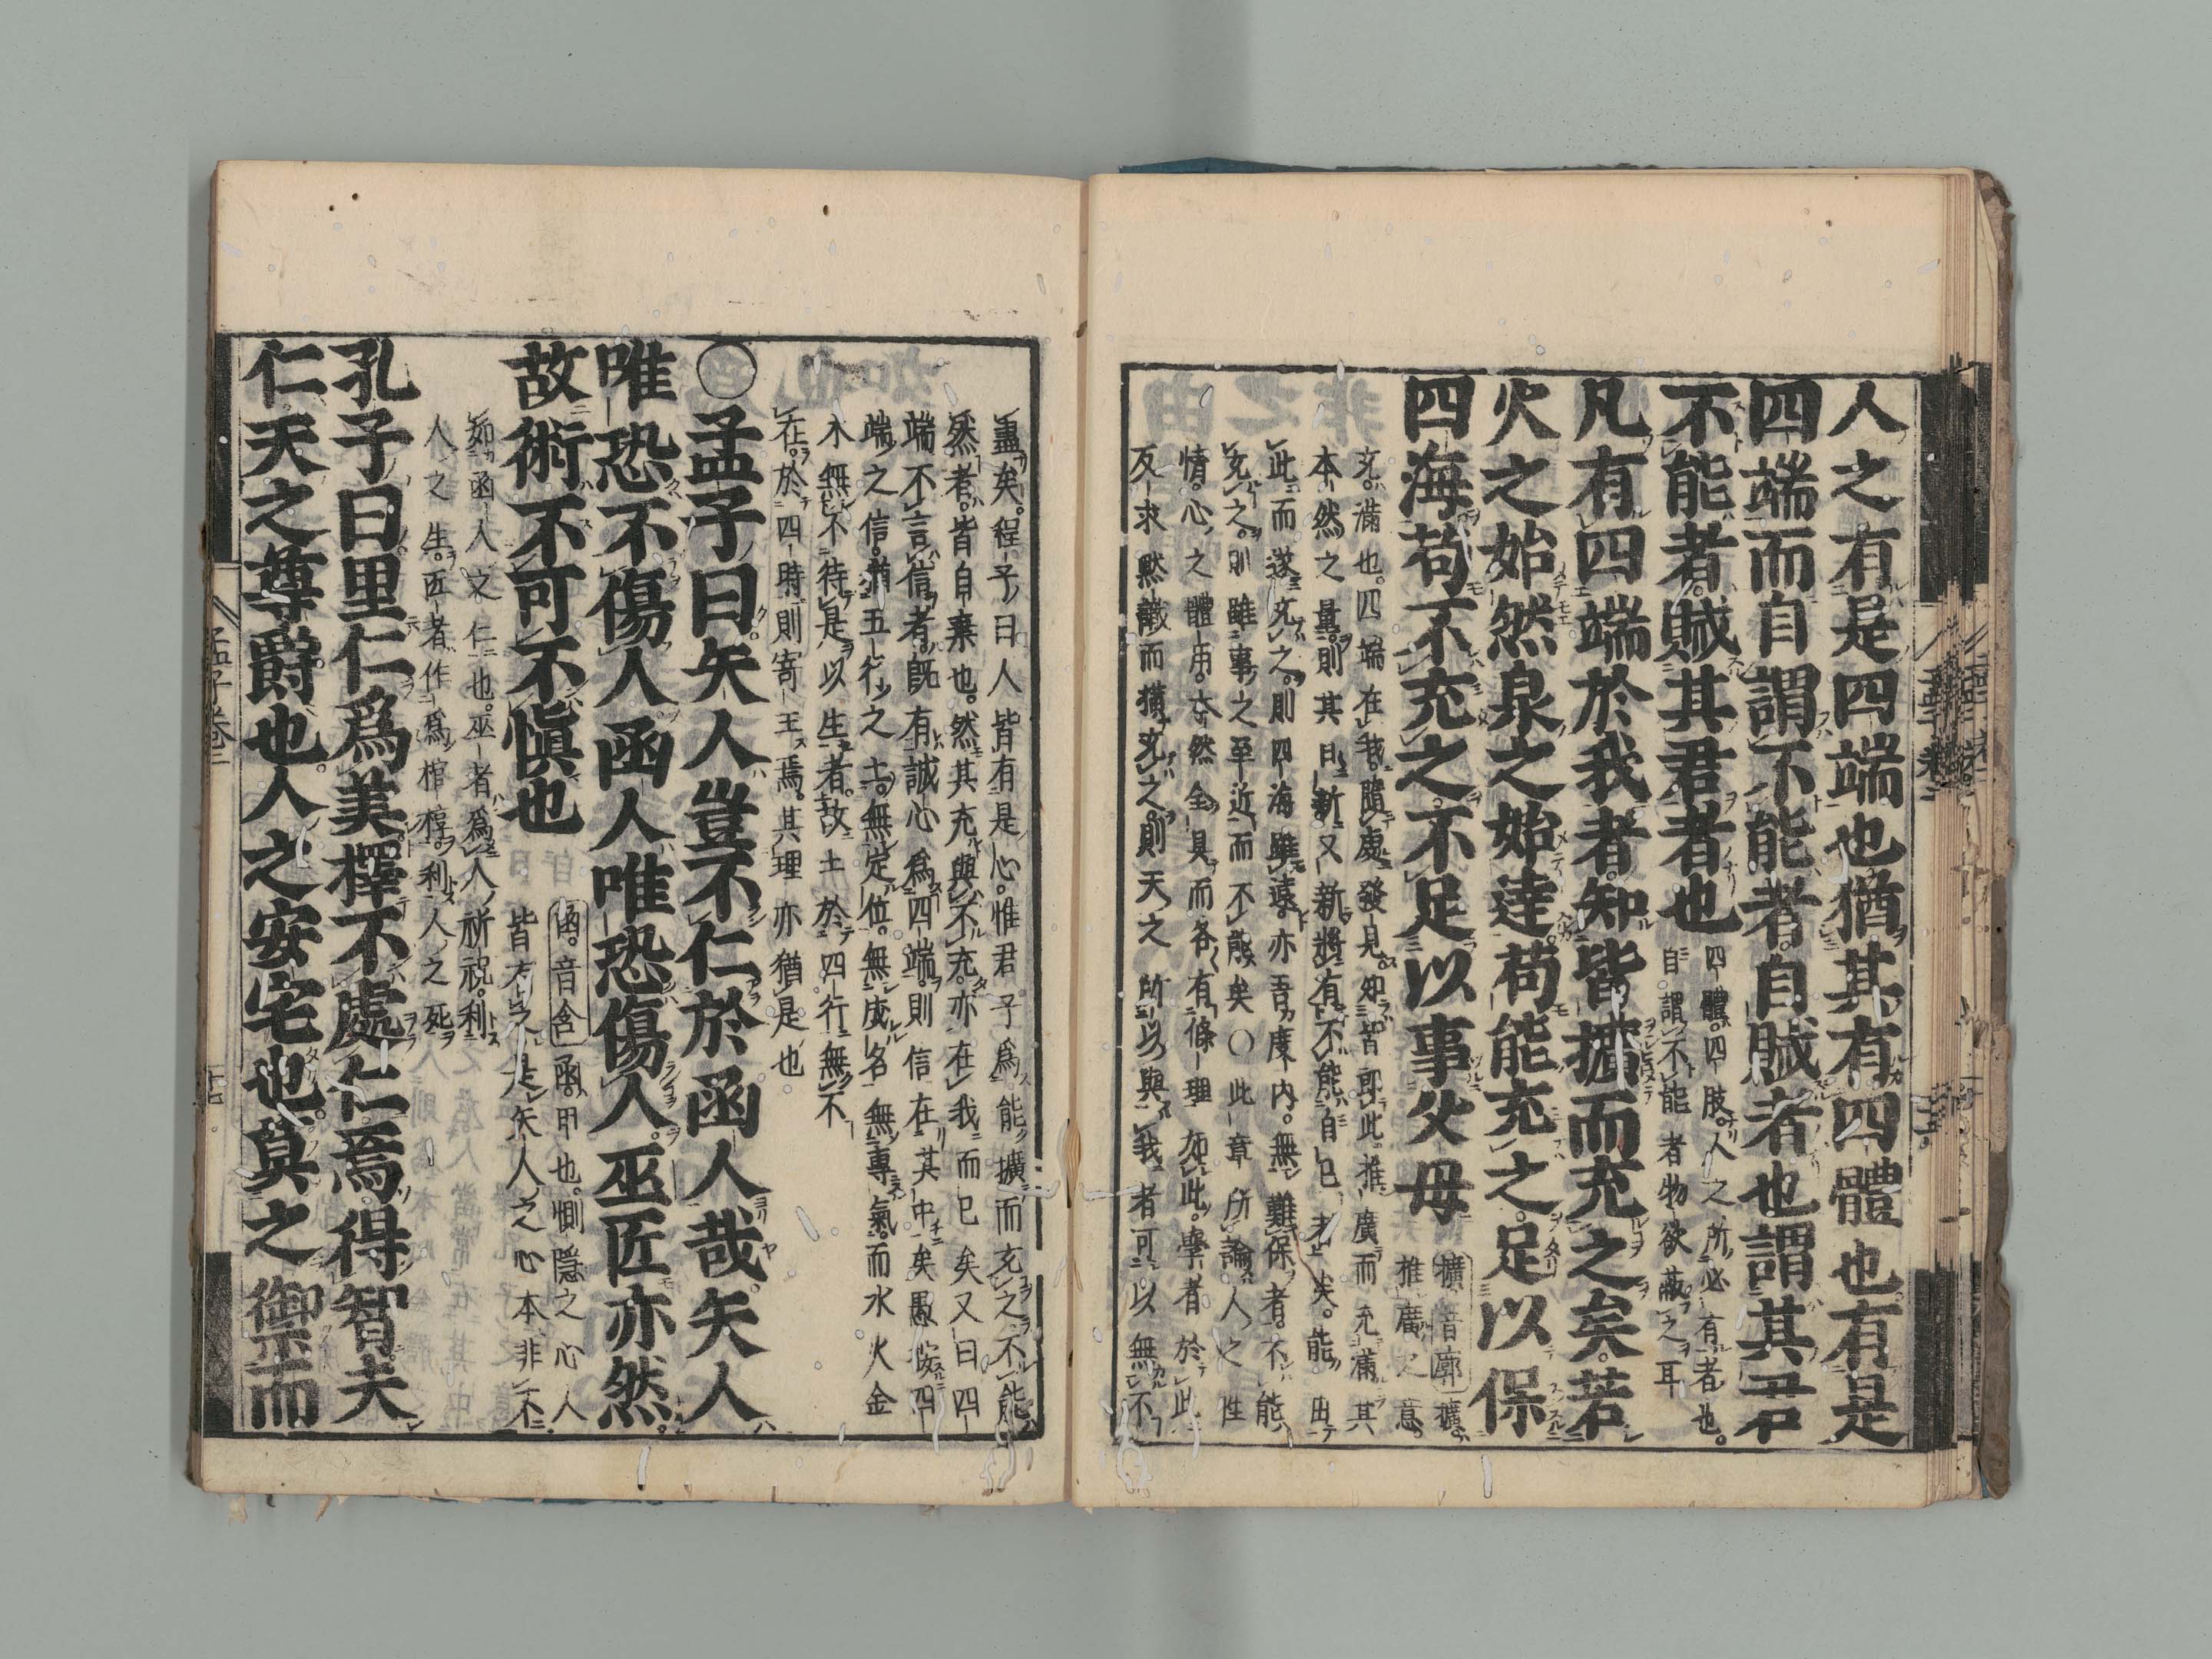 人之有是四端也猶其有四體也有是
四端而自謂不能者自賊者也謂其君
不能者賊其君者也
四體四肢人之所必有者也
自謂不能者物欲蔽之耳
凡有四端於我者知皆擴而充之矣若
火之始然泉之始達苟能充之足以保
四海苟不充之不足以事父母
擴音廓擴
推廣之意
充滿也四端在我隨處發見知皆即此推廣而充滿其
本然之量則其日新又新將有不能自已者矣能由
此而遂充之則四海雖遠亦吾度內無難保者不能
充之則雖事之至近而不能矣〇此章所論人之性
情心之體用本然全具而各有條理如此學者於此
反求默識而擴充之則天之所以與我者可以無不
盡矣程子曰人皆有是心惟君子爲能擴而充之不能
然者皆自棄也然其充與不充亦在我而已矣又曰四
端不言信者既有誠心爲四端則信在其中矣愚按四
端之信猶五行之土無定位無成名無專氣而水火金
木無不待是以生者故土於四行無不
在於四時則寄王焉其理亦猶是也
〇孟子曰矢人豈不仁於函人哉矢人
唯恐不傷人函人唯恐傷人巫匠亦然
故術不可不愼也
函音含函甲也惻隱之心人
皆有之是矢人之心本非不
如函人之仁也巫者爲人祈祝利
人之生匠者作爲棺椁利人之死
孔子曰里仁爲美擇不處仁焉得智夫
仁天之尊爵也人之安宅也莫之禦而
孟子卷三